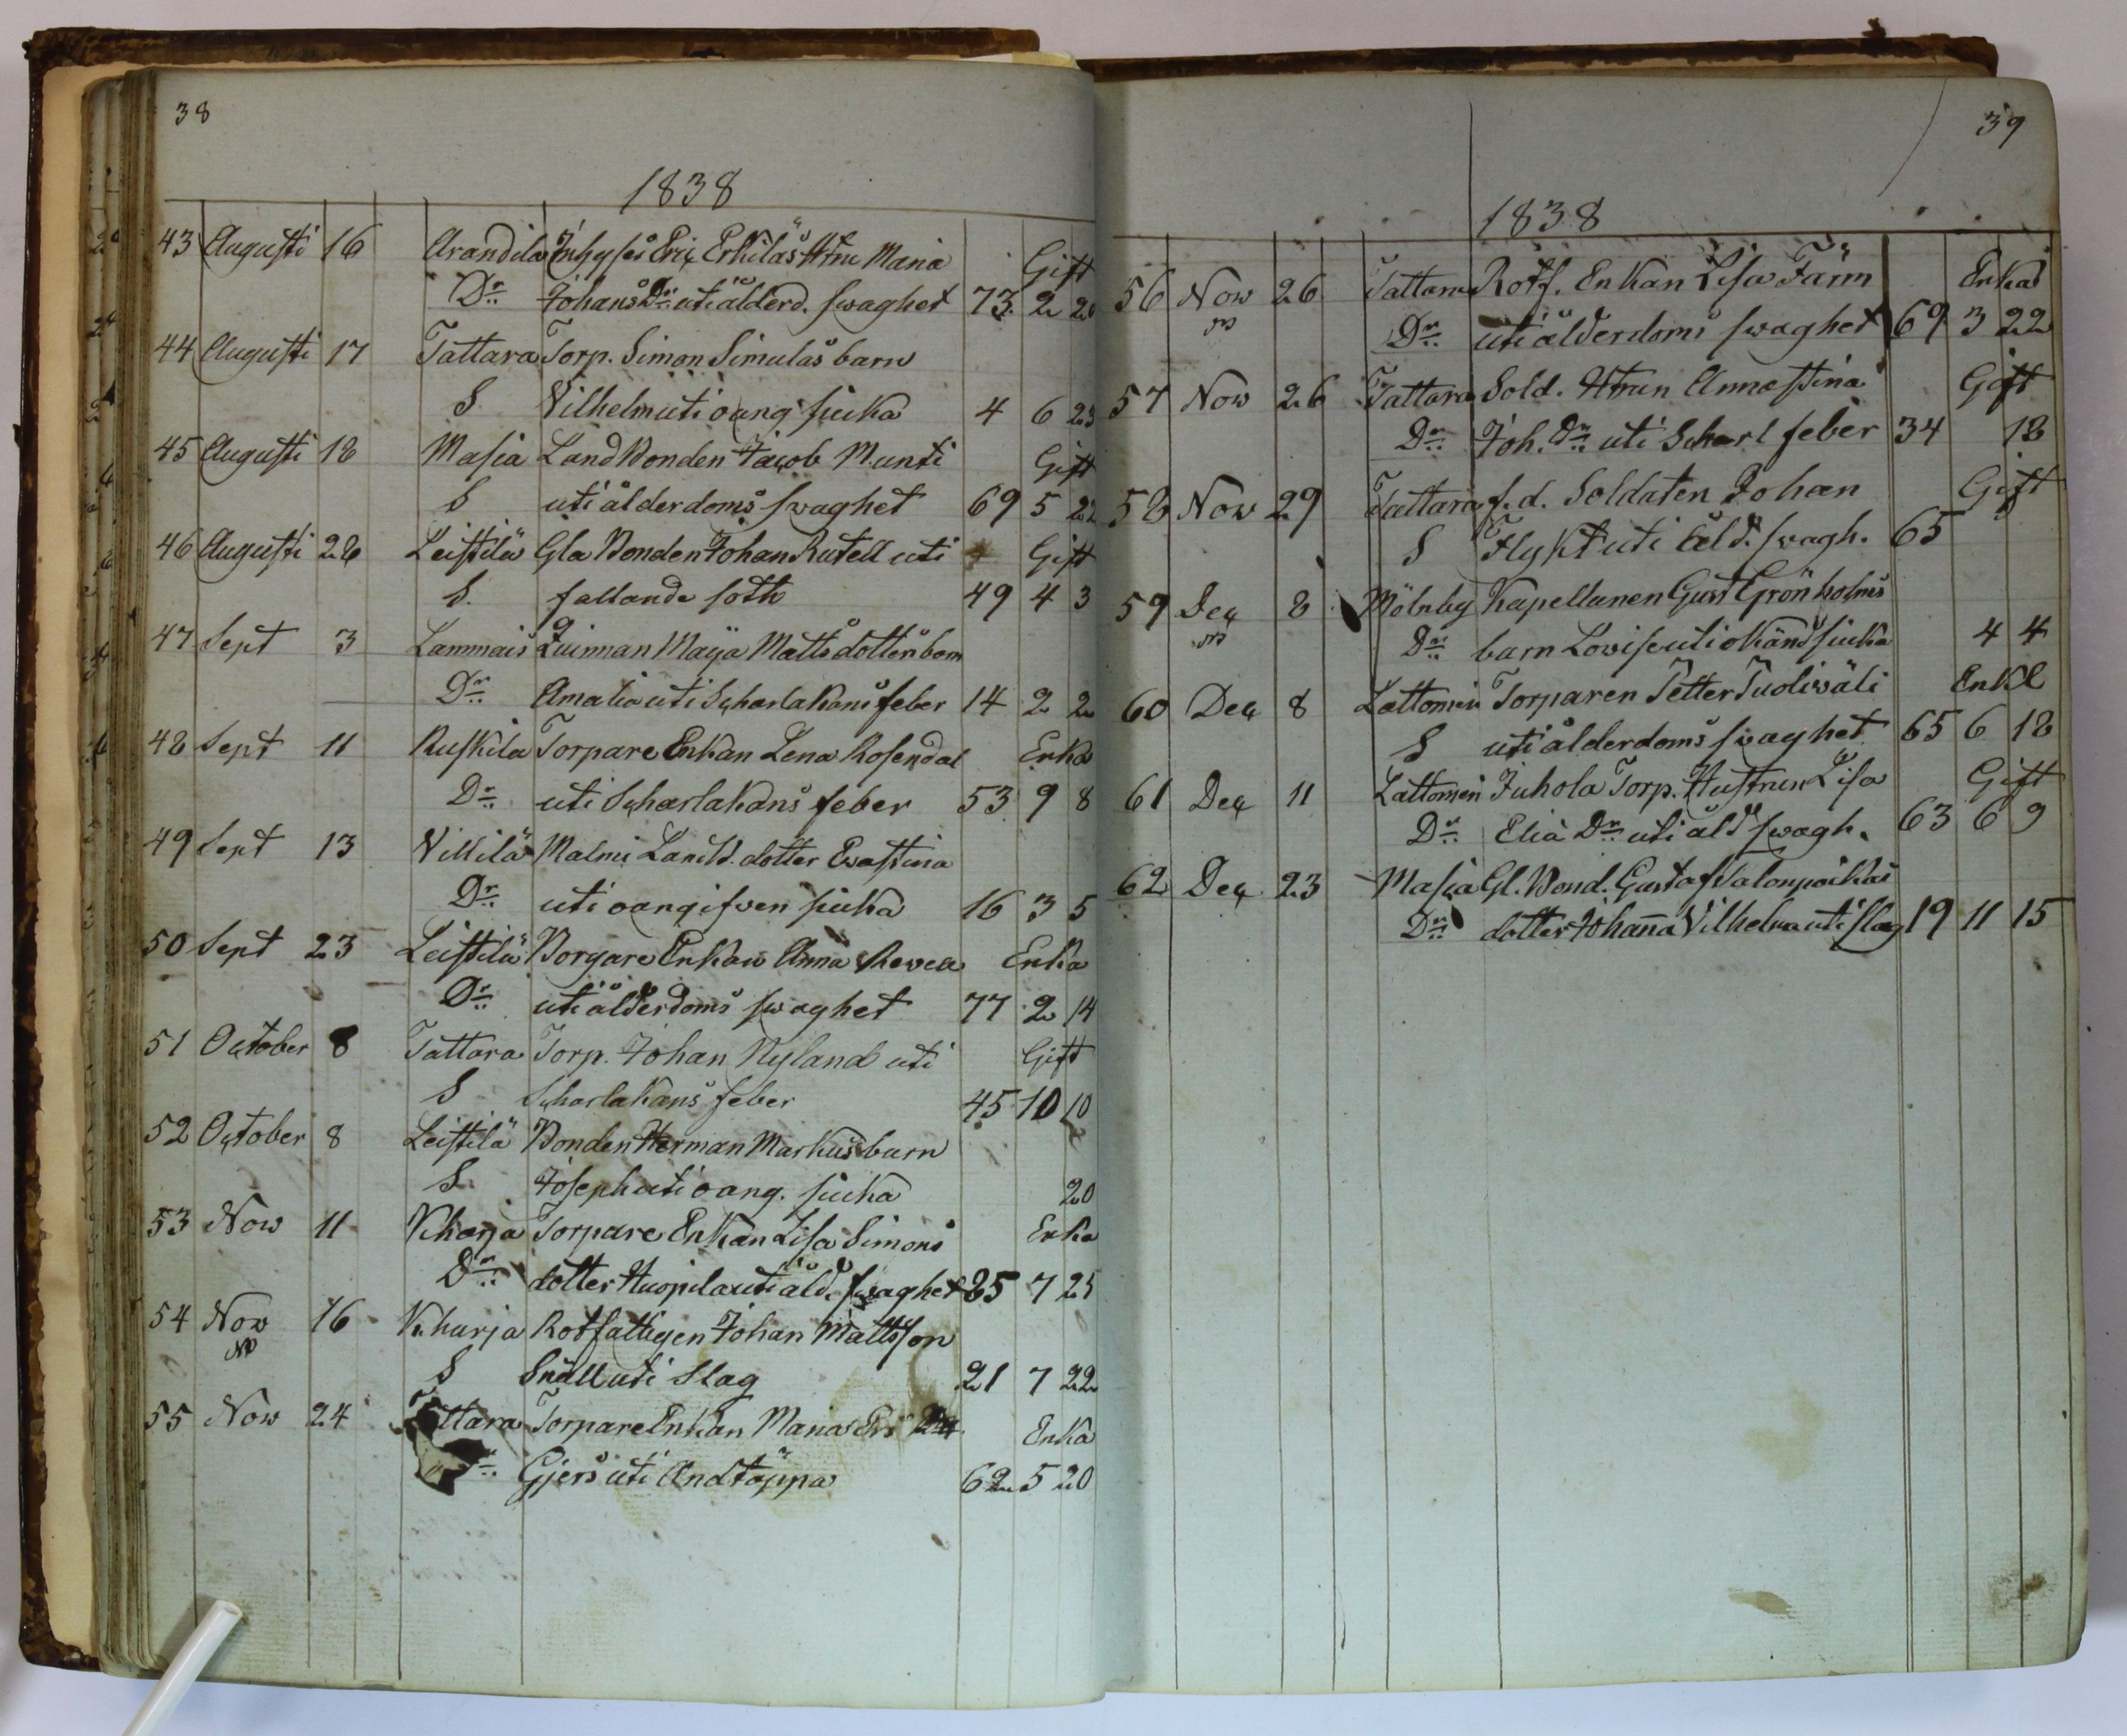 38
1838
43 Augusti 16 Arandila Inhyses Eric Erkiläs Hru Maria Gift
Dr. Johans Dr. uti ålderd. swaghet 73 2 20
44 Augusti 17 Tattara Torp. Simon Simulas barn
S Vilhelm uti oang sjuka 4 6 23
45 Augusti 18 Masia LandBonden Jacob Munti Gift
S uti ålderdoms swaghet 69 5 22
46 Augusti 28 Leistilä Gla Bonden Johan Rutell uti Gift
S. fallande soth 49 4 3
47 Sept 3 Lammais Quinnan Maija Matts dotters barn
Dr. Amalia uti Scharlakans feber 14 2 2
48 Sept 11 Ruskila Torpare Enkan Lena Rosendal Enka
Dr. uti Scharlakans feber 53 9 8
49 Sept 13 Villilä Malmi Landb. dotter Evastina
Dr. uti oangifven sjuka 16 3 5
50 Sept 23 Leistilä Borgare Enkan Anna Revell Enka
Dr. uti ålderdoms swaghet 77 2 14
51 October 8 Tattara Torp. Johan Nyland uti Gift
S Scharlakans feber 45 10 10
52 October 8 Leistilä Bonden Herman Markus barn
S. Joseph uti oang. sjuka 20
53 Now 11 Kharja Torpare Enkan Lisa Simons Enka
Dr. dotter Huopila uti åld. swaghet 85 7 25
54 Now 16 Kharja Rotfattigen Johan Mattsson
S Snäll uti Slag 21 7 22
55 Now 24 Tattara Torpare Enkan Maria Ers Dr. Enka
Gjers uti Andtäppa 62 5 20
39
1838
56 Now 26 Tattara Rotf. Enkan Lisa Färm Enka
Dr. uti ålderdoms swaghet 69 3 22
57 Now 26 Tattara Sold. Hrun Annastina Gift
Dr. Joh. Dr. uti Scharl feber 34 18
58 Now 29 Tattara f.d. Soldaten Johan Gift
S Flykt uti åld. swagh. 65
59 Dec 8 Mölnby Kapellanen Gust Grönholms
Dr. barn Lovise uti okänd sjuka 4 4
60 Dec 8 Lattomeri Torparen Petter Tuoliwäli Enkl
S uti ålderdoms swaghet 65 6 18
61 Dec 11 Lattomeri Juhola Torp. Hustrun Lisa Gift
Dr. Elia Dr. uti åld swagh. 63 6 9
62 Dec 23 Masia Gl. Bond. Gustaf Talonpoikas
Dr. dotter Johanna Vilhelma uti slag 19 11 15